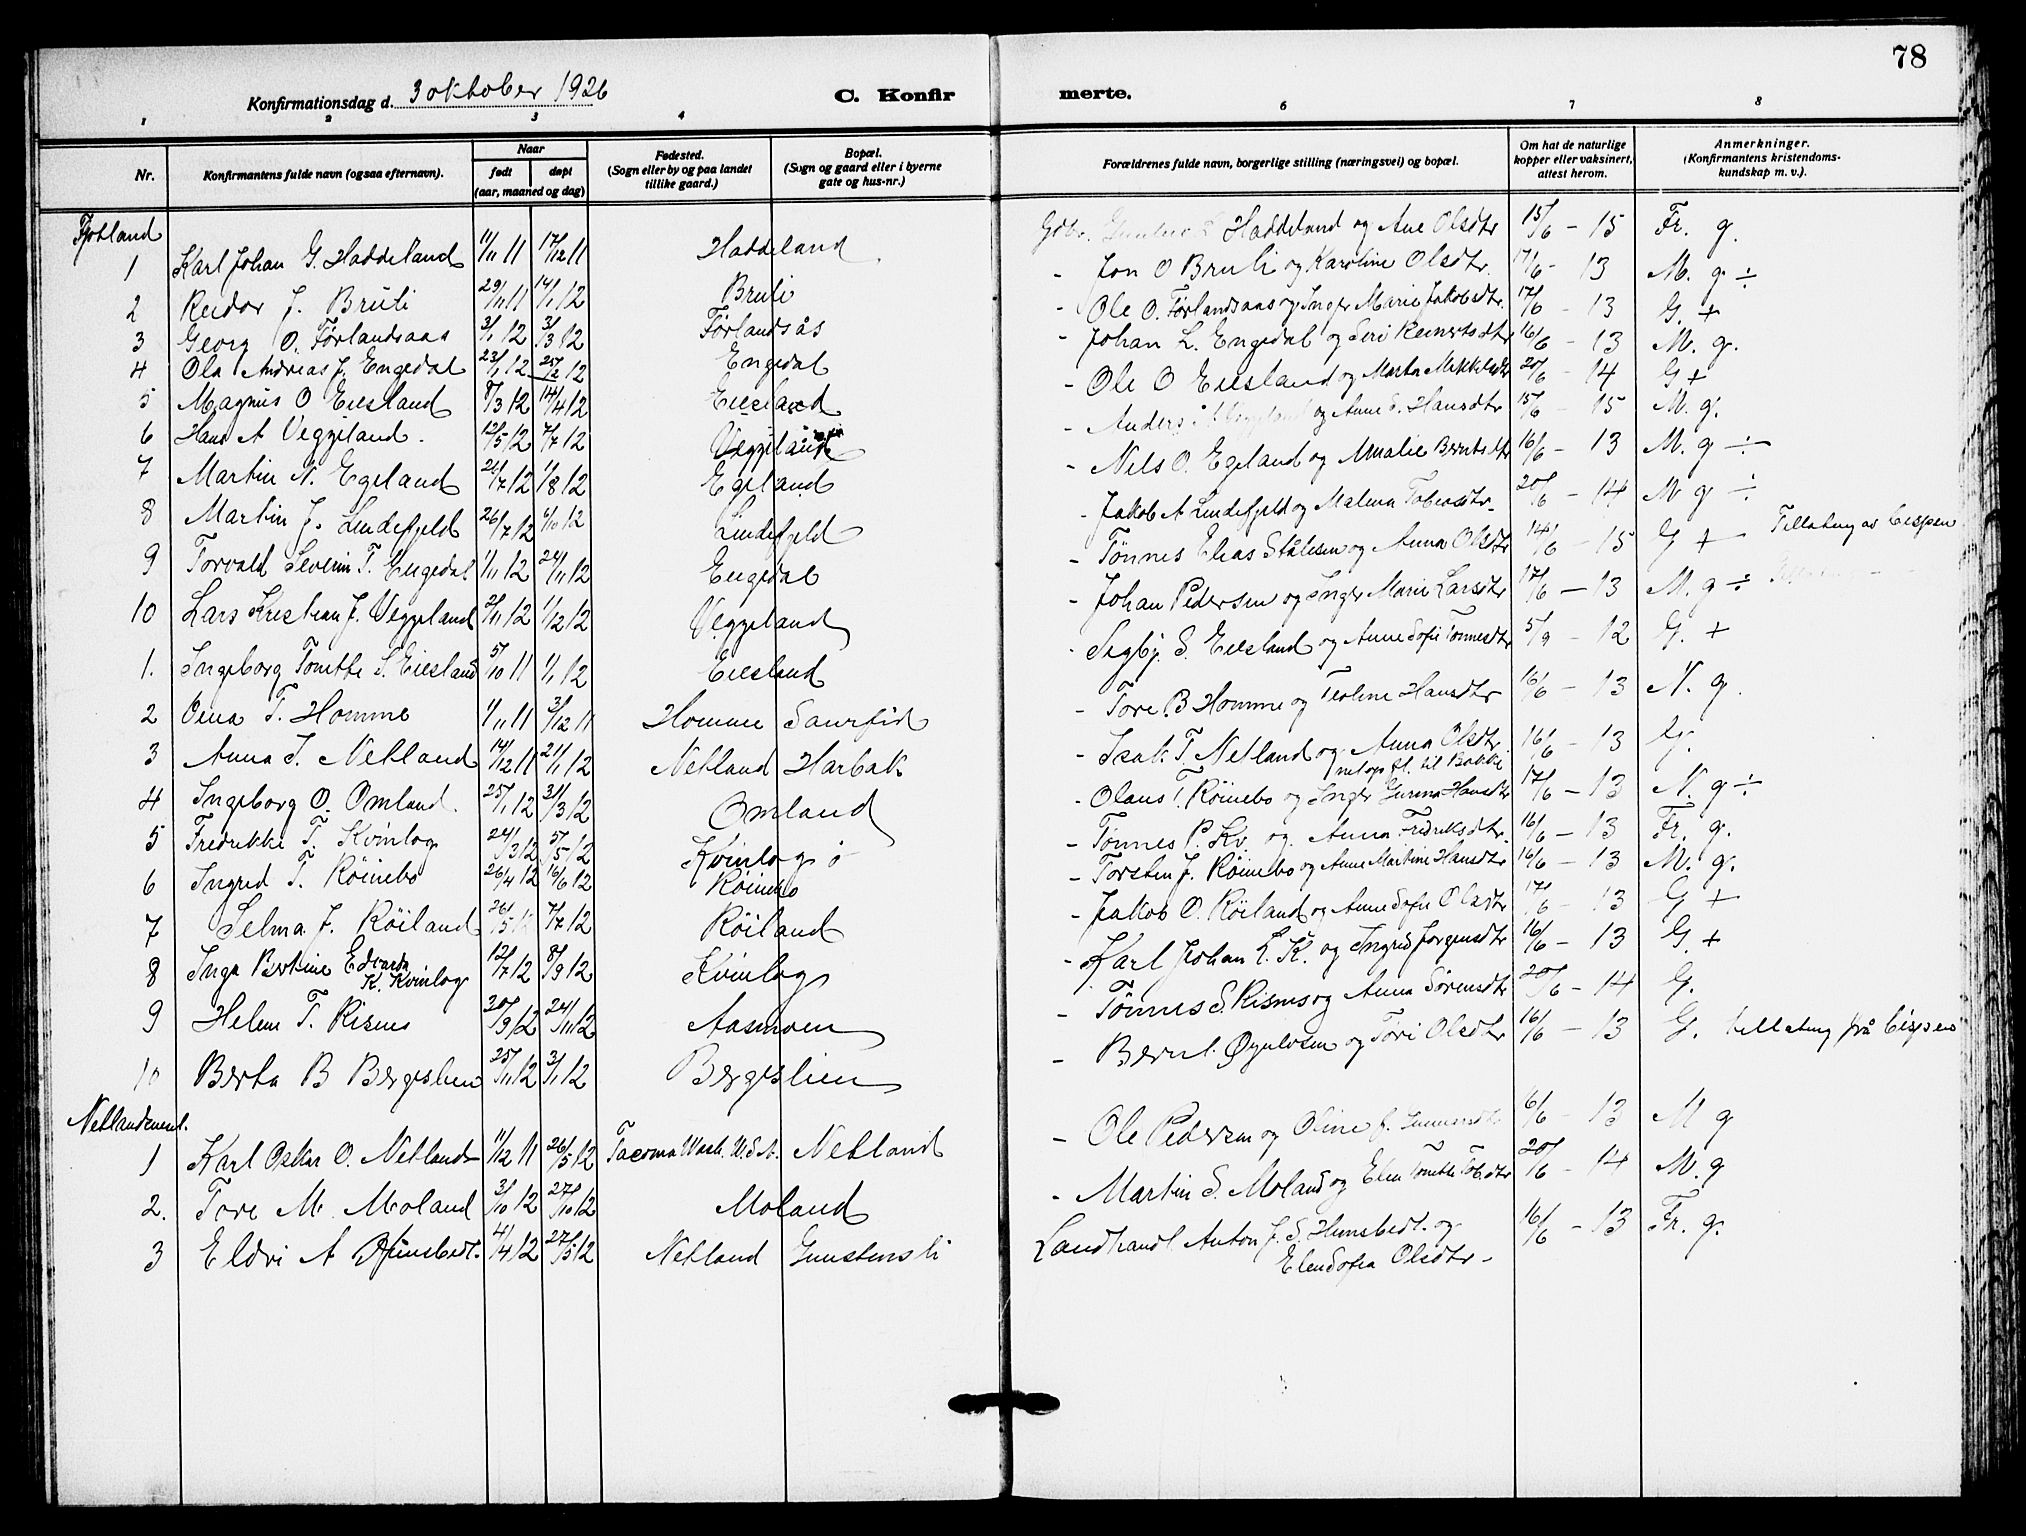 78
Konfirmationsdag d. 3 oktober 1926 C. Konfir merte.
1 2 3 4 6 7 8
Nr. Konfirmantens fulde navn (ogsaa efternavn). Naar født døpt (aar, maaned og dag) Fødested. (Sogn eller by og paa landet tillike gaard.) Bopæl. (Sogn og gaard eller i byerne gate og hus-nr.) Forældrenes fulde navn, borgerlige stilling (næringsvei) og bopæl. Om hat de naturlige kopper eller vaksinert, attest herom. Anmerkninger. (Konfirmantens kristendoms-kundskap m. v.).
Fjotland
1 Karl Johan G. Haddeland 11/11 11 17/12 11 Haddeland Gdbr. Haddeland og Ane Olsdtr 15/6 - 15 Fr. g.
2 Reidar J. Bruli 29/11 11 14/1 12 Bruli - Jon O Bruli og Karoline Olsdtr. 17/6 - 13 M. g ÷
3 Georg O. Førlandsaas 3/1 12 3/3 12 Førlandsås - Ole O. Førlandsaas og Inger Marie Jakobsdtr. 17/6 - 13 G. +
4 Ola Andreas J. Engedal 23/1 12 25/2 12 Engedal - Johan L. Engedal og Siri Reinertsdtr 16/6 - 13 M. g.
5 Magnus O Eiesland 8/3 12 14/4 12 Eiesland - Ole O Eiesland og Marta Mikkelsdtr 20/6 - 14 G +
6 Hans A Veggeland. 12/5 12 7/7 12 Veggeland - Anders og Anne S. Hansdtr 15/6 - 15 M. g.
7 Martin N. Egeland 24/7 12 1/8 12 Egeland - Nils O. Egeland og Amalie Berntsdtr 16/6 - 13 M. g ÷
8 Martin J. Lindefjeld 26/7 12 6/10 12 Lindefjeld - Jakob A Lindefjeld og Malena Tobiasdtr. 20/6 - 14 M g ÷
9 Torvald Severin T. Engedal 1/11 12 24/11 12 Engedal - Tønnes Elias Stålesen og Anna Olsdtr 14/6 - 15 G + Tillating av bispen
10 Lars Kristian J. Veggeland 2/11 12 1/12 12 Veggeland - Johan Pedersen og Inger Marie Larsdtr 17/6 - 13 M. g ÷
1. Ingeborg Tomthe S. Eiesland 5/10 11 1/1 12 Eiesland - Sigbj. S. Eiesland og Anne Sofie Tønnesdtr 5/9 - 12 G. +
2 Oina T. Homme 1/11 11 3/12 11 Homme Saurfid - Tore B Homme og Teoline Hansdtr 16/6 - 13 N. g.
3 Anna I. Netland 14/12 11 21/1 12 Netland Harbak - Isak T. Netland og Anna Olsdtr. 16/6 - 13 G.
4 Ingeborg O. Omland. 25/1 12 31/3 12 Omland - Olaus T. Röinebo og Inger Gurina Hansdtr 17/6 - 13 N. g ÷
5 Fredrikke T. Kvinlog 24/3 12 5/5 12 Kvinlog ö - Tønnes P. Kv. og Anna Fredriksdtr. 16/6 - 13 Fr. g.
6 Ingrid T. Röinebo 26/4 12 16/6 12 Röinebo - Torsten J. Röinebo og Anne Martine Hansdtr 16/6 - 13 M. g.
7 Selma J. Röiland 26/5 12 7/7 12 Röiland - Jakob O. Röiland og Anne Sofie Olsdtr 17/6 - 13 G +
8 Inga Bertine Edvarda K. Kvinlog 12/7 12 8/9 12 Kvinlog - Karl Johan L. K. og Ingrid Jørgensdtr 16/6 - 13 G +
9 Helene T. Risnes 30/9 12 24/11 12 Aasmoen - Tönnes S. Risnes og Anna Sörensdtr 20/6 - 14 G.
10 Berta B Bergslien 25/11 12 3/1 12 Bergslien - Bernt. Øyulvsen og Tori Olsdtr 16/6 - 13 G. tillating frå bispen
Netlandsmed.
1 Karl Oskar O. Netland 11/12 11 26/5 12 Tacoma Wash. U.S.A. Netland - Ole Pedersen og Oline J. 6/6 - 13 M g
2. Tore M. Moland 3/10 12 27/10 12 Moland - Martin S. Moland og Elen Tomthe Tobdtr 20/6 - 14 M. g
3 Eldri A Hunsbedt. 4/4 12 27/5 12 Netland Gunstensli Landhandl. Anton J. S. Hunsbedt. og
Elen Sofia Olsdtr - 16/6 - 13 Fr. g.